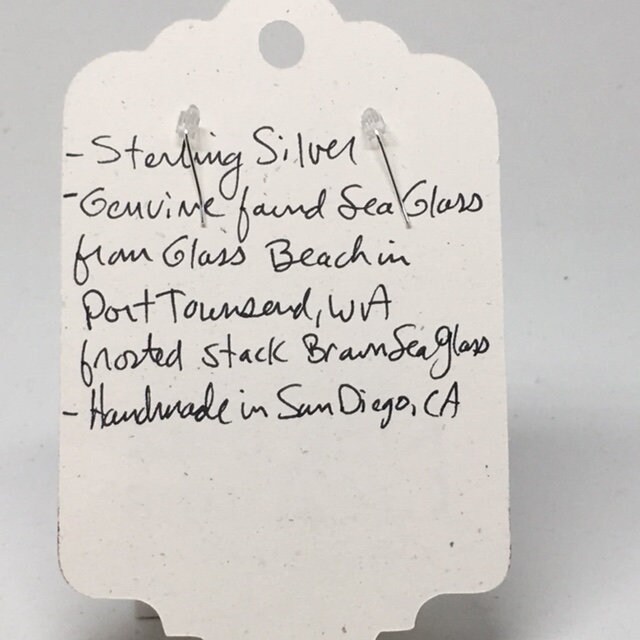 - Sterling Silver
- Genuine found Sea Glass
from Glass Beach in
Port Townsend, WA
frosted stack Brown Sea glass
- Handmade in San Diego, CA